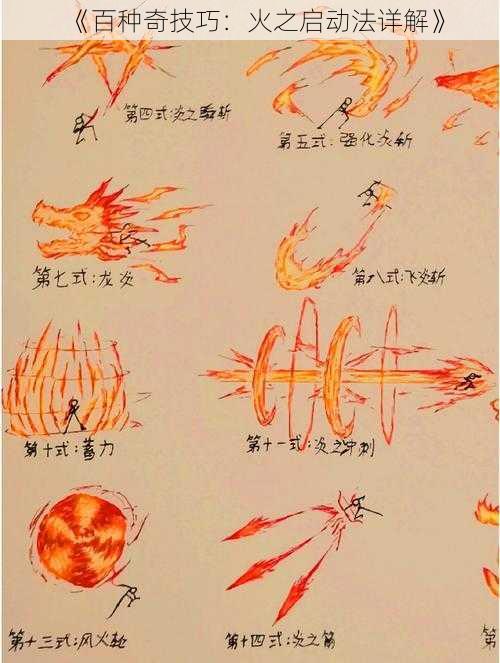 《百种奇技巧：火之启动法详解》
第四式:炎之瞬斩
第五式：强化炎斩
第七式:龙炎
第八式:飞炎斩
第十式:蓄力
第十一式:炎之冲刺
第十三式:风火轮
第十四式:炎之箭
第